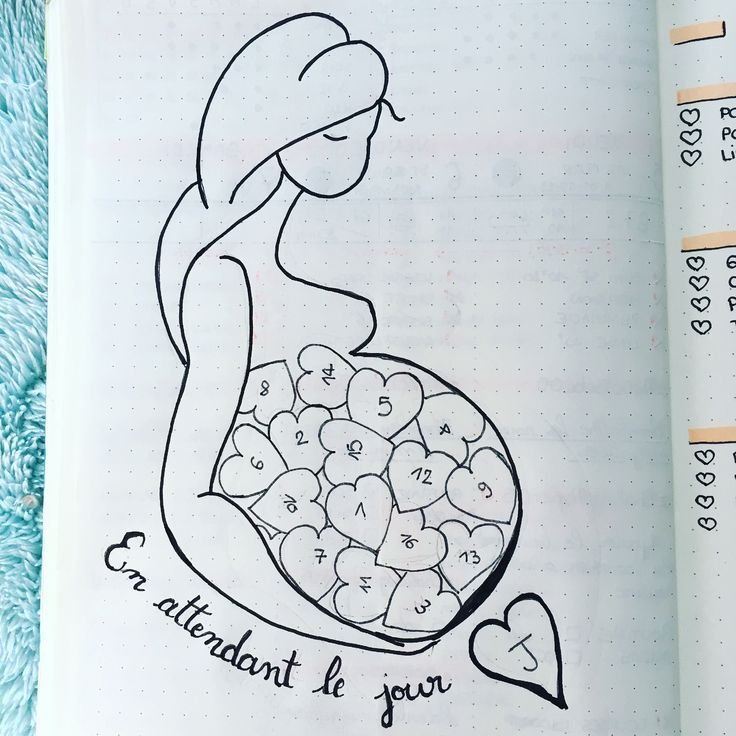 14
8
5
4
2
15
6
12
9
10
1
16
7
13
11
3
En attendant le jour
J